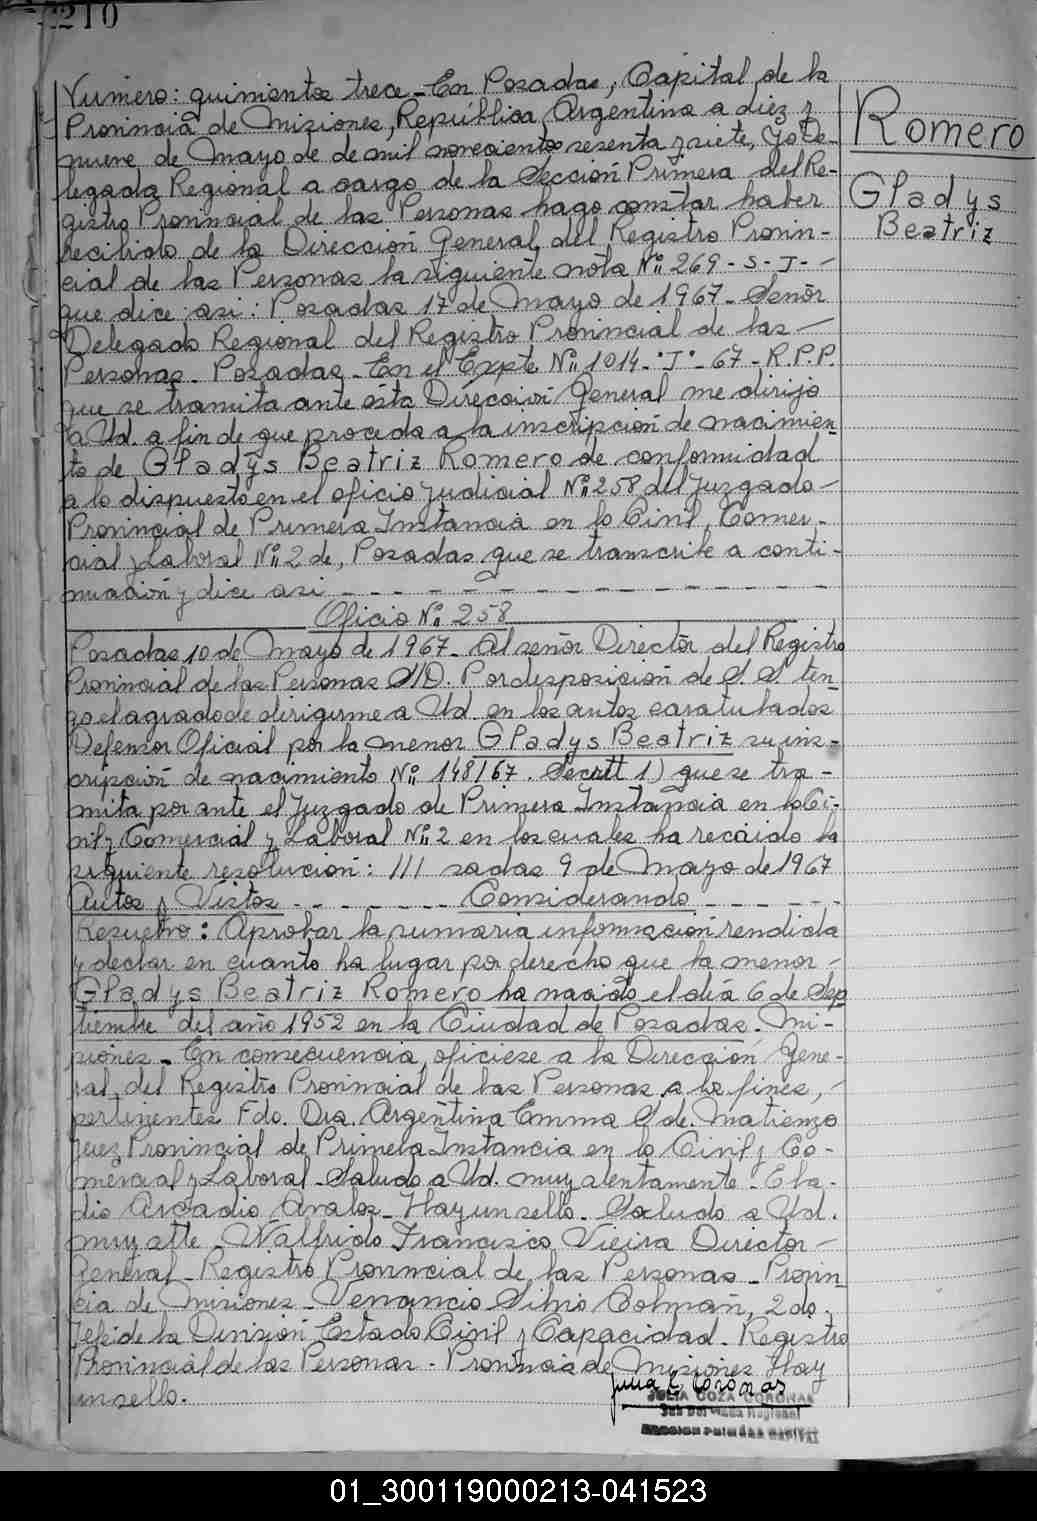 210
Número: quinientos trece_En Posadas, Capital de la
Provincia de Misiones, República Argentina a diez y
nueve de Mayo de de mil novecientos sesenta y siete, Yo De-
legada Regional a cargo de la Sección Primera del Re-
gistro Provincial de las Personas hago constar haber
recibido de la Dirección General del Registro Provin-
cial de las Personas la siguiente nota Nº 269-S-J-
que dice así: Posadas 17 de Mayo de 1967_Señor
Delegado Regional del Registro Provincial de las
Personas_Posadas_En el Expte Nº 1014-"J"-67-R.P.P.
que se tramita ante ésta Dirección General me dirijo
a Ud. a fin de que proceda a la inscripción de nacimien-
to de Gladys Beatriz Romero de conformidad
a lo dispuesto en el oficio judicial Nº 258 del Juzgado
Provincial de Primera Instancia en lo Civil, Comer-
cial y Laboral Nº 2 de, Posadas que se transcribe a conti-
nuación y dice así
Oficio Nº 258
Posadas 10 de Mayo de 1967_Al señor Director del Registro
Provincial de las Personas S/D. Por desposición de S.S. ten-
go el agrado de dirigirme a Ud. en los autos caratulados
Defensor Oficial por la menor Gladys Beatriz su ins-
cripción de nacimiento Nº 148/67. Secrtt 1) que se tra-
mita por ante el Juzgado de Primera Instancia en lo Ci-
vil y Comercial y Laboral Nº 2 en los cuales ha recaido la
siguiente resolución: /// sadas 9 de Mayo de 1967
Autos y Vistos Considerando
Resuelvo: Aprobar la sumaria información rendida
y declar en cuanto ha lugar por derecho que la menor
Gladys Beatriz Romero ha nacido el día 6 de Sep
tiembre del año 1952 en la Ciudad de Posadas_Mi-
siones_En consecuencia, oficiese a la Dirección Gene-
ral del Registro Provincial de las Personas a los fines,
pertinentes Fdo. Dra. Argentina Emma S de. Matienzo
Juez Provincial de Primera Instancia en lo Civil y Co-
mercial y Laboral_Saludo a Ud. muy atentamente_Ela-
dio Arcadio Avalos_Hay un sello_Saludo a Ud.
muy atte. Walfrido Francisco Vieira Director
General_Registro Provincial de las Personas_Provin-
cia de Misiones_Venancio Silvio Colman, 2do.
Jefe de la División Estado Civil y Capacidad_Registro
Provincial de las Personas_Provincia de Misiones Hay
un sello.
Romero
Gladys
Beatriz
Julia C. Coronas
JULIA COZA CORONAS
Regional
SECCION PRIMERA CAPITAL
01_300119000213-041523